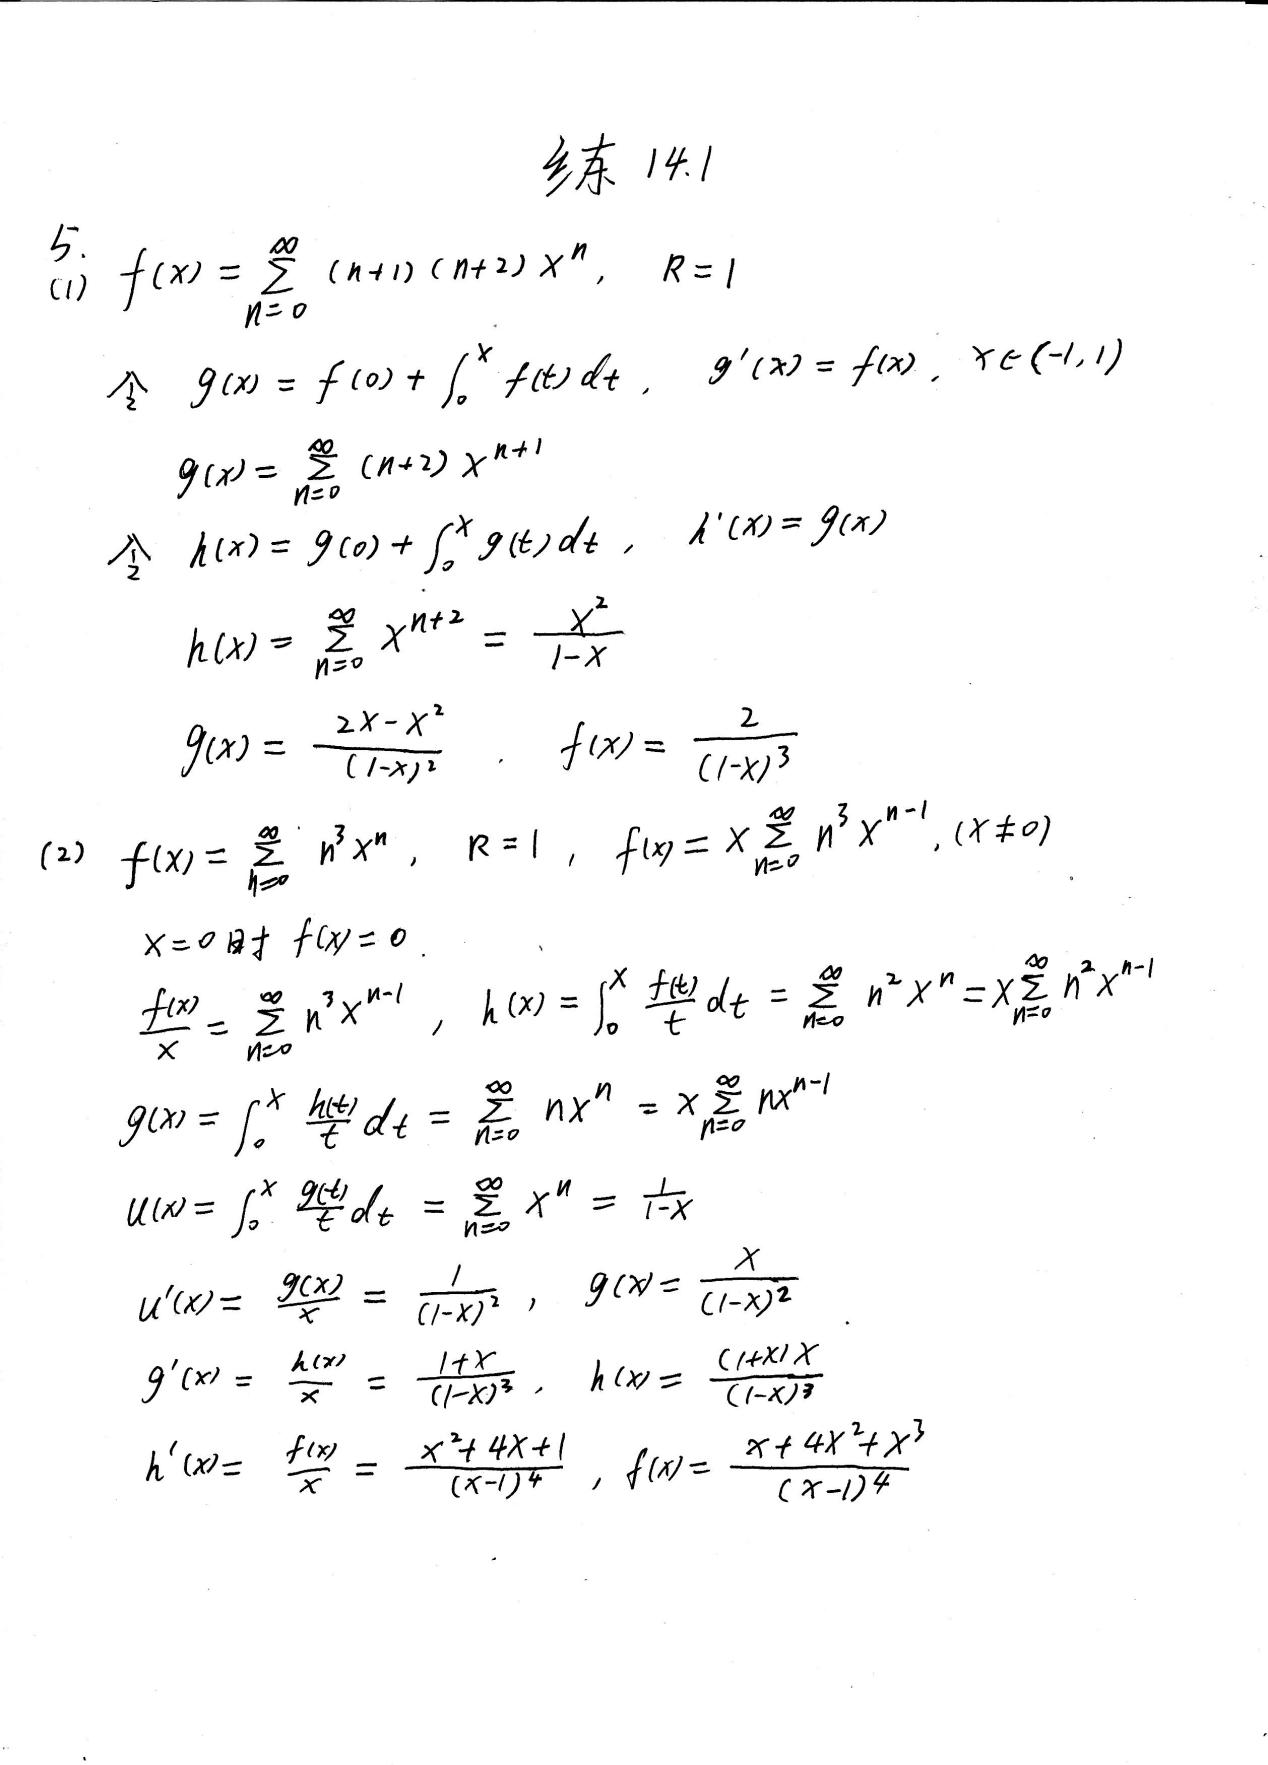 练 14.1
5.
(1) f(x) = ∑_{n=0}^{∞} (n+1)(n+2) x^n, R=1
令 g(x) = f(0) + ∫_0^x f(t) dt, g'(x) = f(x), x∈(-1,1)
g(x) = ∑_{n=0}^{∞} (n+2) x^{n+1}
令 h(x) = g(0) + ∫_0^x g(t) dt, h'(x) = g(x)
h(x) = ∑_{n=0}^{∞} x^{n+2} = \frac{x^2}{1-x}
g(x) = \frac{2x-x^2}{(1-x)^2}. f(x) = \frac{2}{(1-x)^3}
(2) f(x) = ∑_{n=0}^{∞} n^3 x^n, R=1, f(x) = x ∑_{n=0}^{∞} n^3 x^{n-1}, (x≠0)
x=0时 f(x)=0.
\frac{f(x)}{x} = ∑_{n=0}^{∞} n^3 x^{n-1}, h(x) = ∫_0^x \frac{f(t)}{t} dt = ∑_{n=0}^{∞} n^2 x^n = x ∑_{n=0}^{∞} n^2 x^{n-1}
g(x) = ∫_0^x \frac{h(t)}{t} dt = ∑_{n=0}^{∞} nx^n = x ∑_{n=0}^{∞} nx^{n-1}
u(x) = ∫_0^x \frac{g(t)}{t} dt = ∑_{n=0}^{∞} x^n = \frac{1}{1-x}
u'(x) = \frac{g(x)}{x} = \frac{1}{(1-x)^2}, g(x) = \frac{x}{(1-x)^2}
g'(x) = \frac{h(x)}{x} = \frac{1+x}{(1-x)^3}, h(x) = \frac{(1+x)x}{(1-x)^3}
h'(x) = \frac{f(x)}{x} = \frac{x^2+4x+1}{(x-1)^4}, f(x) = \frac{x+4x^2+x^3}{(x-1)^4}